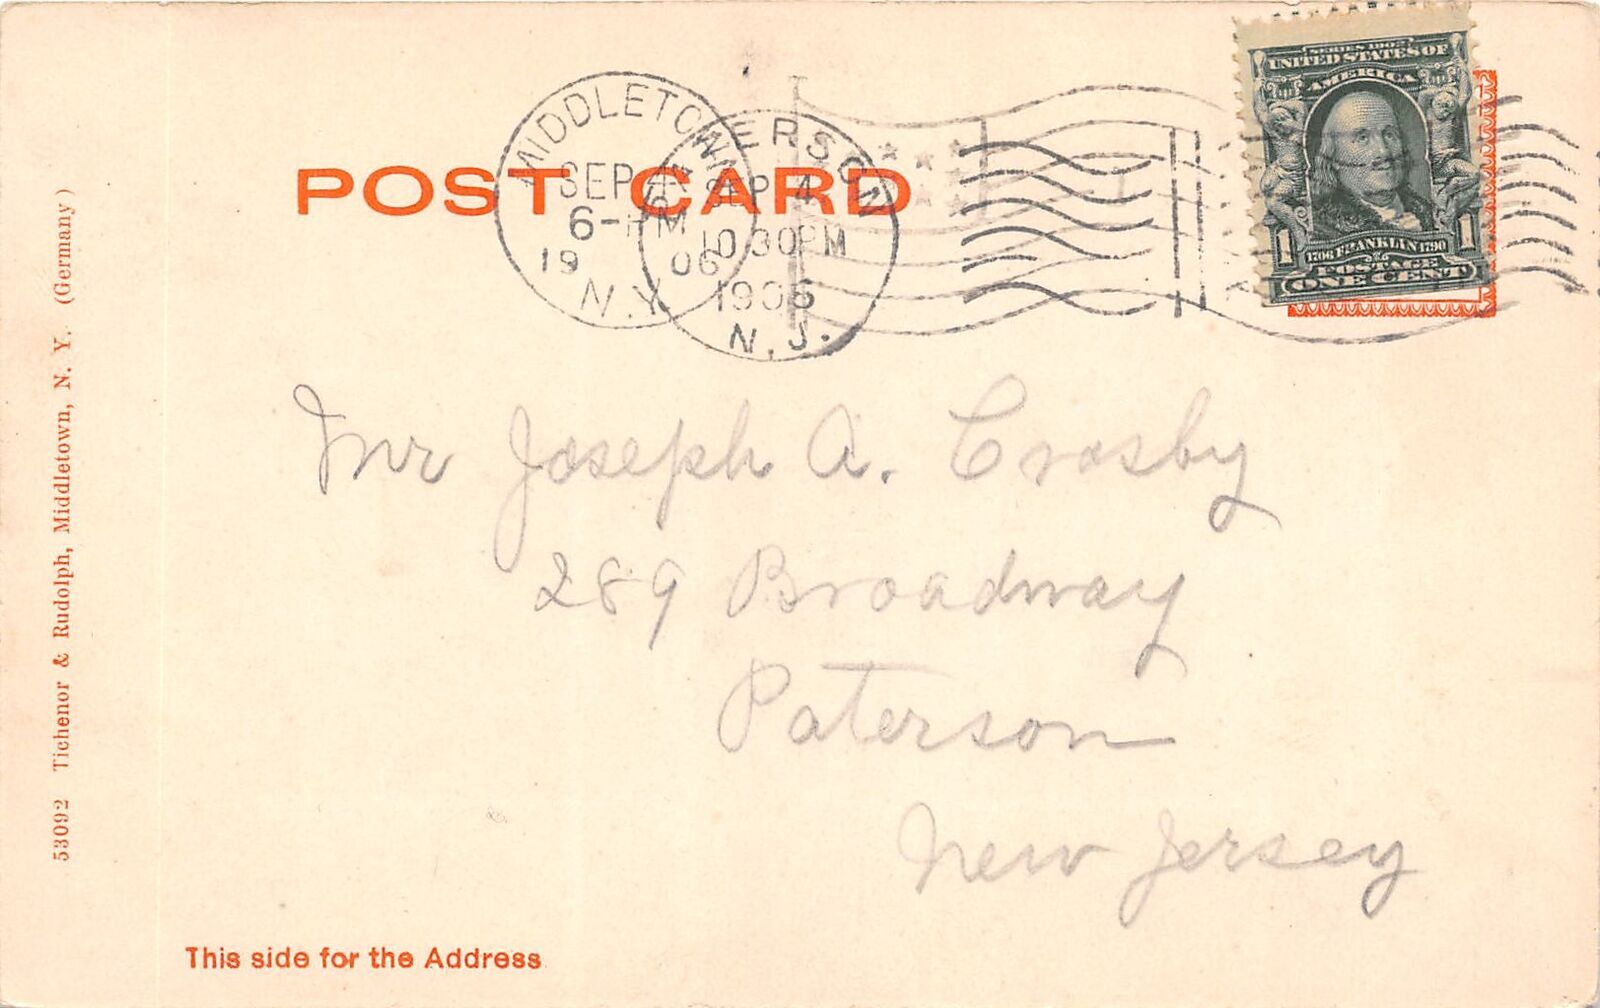 POST CARD
MIDDLETOWN
SEP 4
6-PM
1906
N.Y.
PATERSON
SEP 4
10 30 PM
1906
N.J.
SERIES 1902
UNITED STATES OF
AMERICA
1 1
1706 FRANKLIN 1790
POSTAGE
ONE CENT
Mr Joseph A. Crosby
289 Broadway
Paterson
New Jersey
This side for the Address
53092 Tichenor & Rudolph, Middletown, N. Y. (Germany)